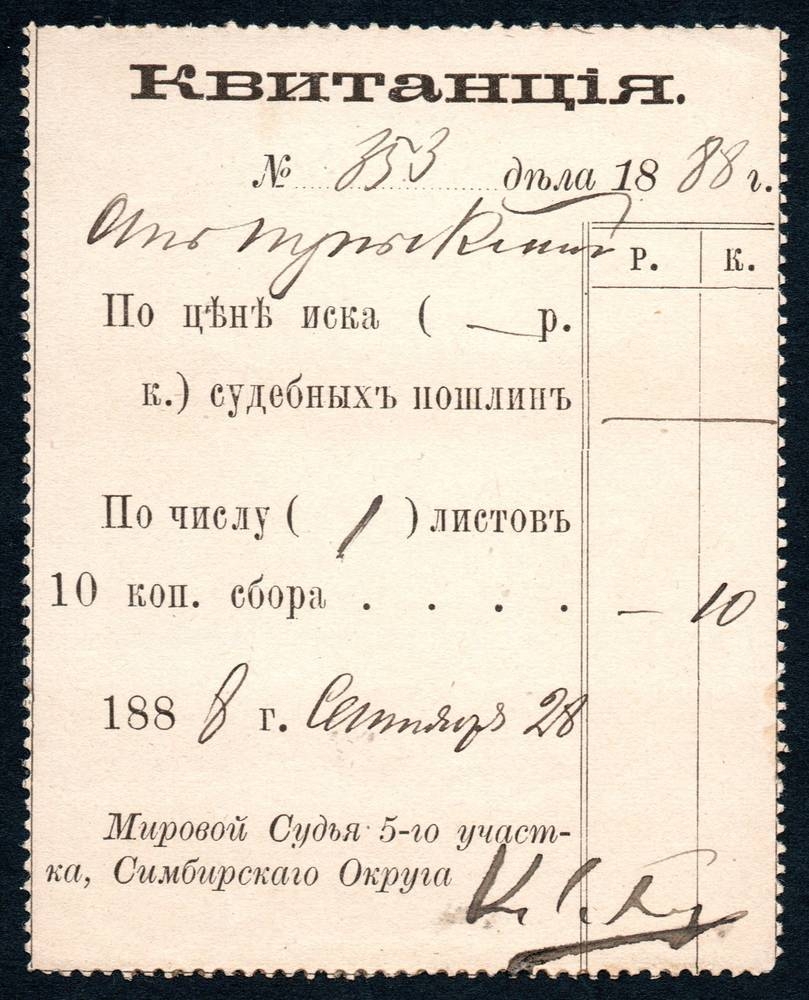 Квитанція.
№ 353 дѣла 18 88 г.
Р. К.
По цѣнѣ иска ( — р.
к.) судебныхъ пошлинъ —
По числу ( 1 ) листовъ
10 коп. сбора . . . . — 10
188 8 г. Сентября 28
Мировой Судья 5-го участ-
ка, Симбирскаго Округа